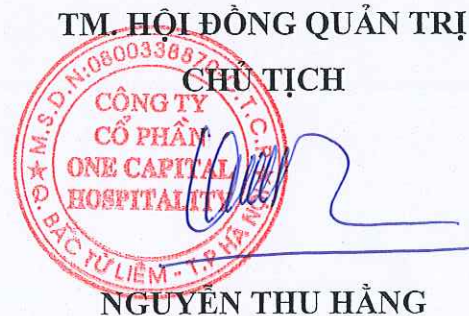 TM. HỘI ĐỒNG QUẢN TRỊ
CHỦ TỊCH
M.S.D.N:0800338870
C.T.C.P
CÔNG TY
CỔ PHẦN
ONE CAPITAL
HOSPITALITY
Q. BẮC TỪ LIÊM - T.P HÀ NỘI
NGUYỄN THU HẰNG